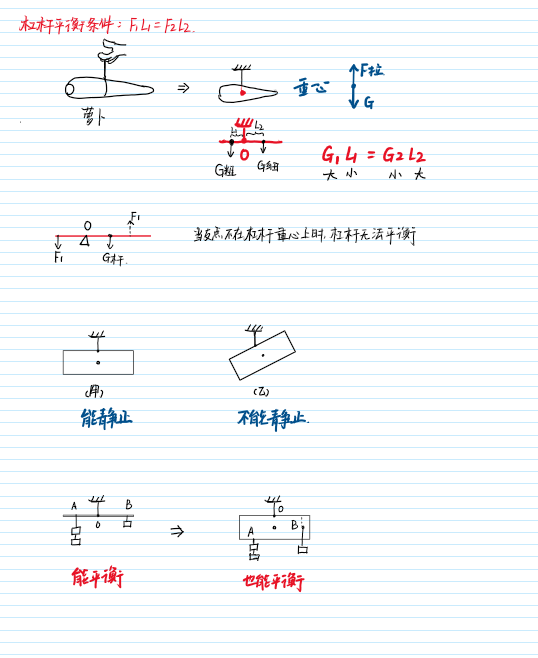 杠杆平衡条件：F₁L₁=F₂L₂.
萝卜
重心
F拉
G
L₁ L₂
O
G粗 G细
G₁L₁=G₂L₂
大 小 小 大
O F₁
F₁ G杆.
当支点不在杠杆重心上时，杠杆无法平衡
(甲) (乙)
能静止 不能静止.
A B
O
O
A B
能平衡 也能平衡